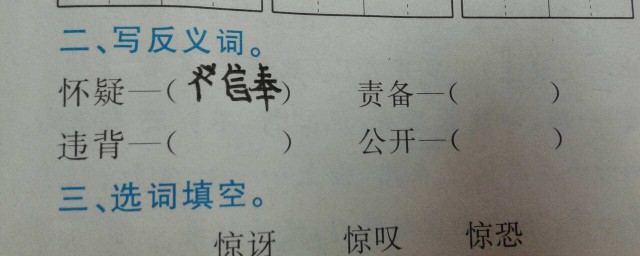 二、写反义词。
怀疑—(信奉) 责备—( )
违背—( ) 公开—( )
三、选词填空。
惊讶 惊叹 惊恐